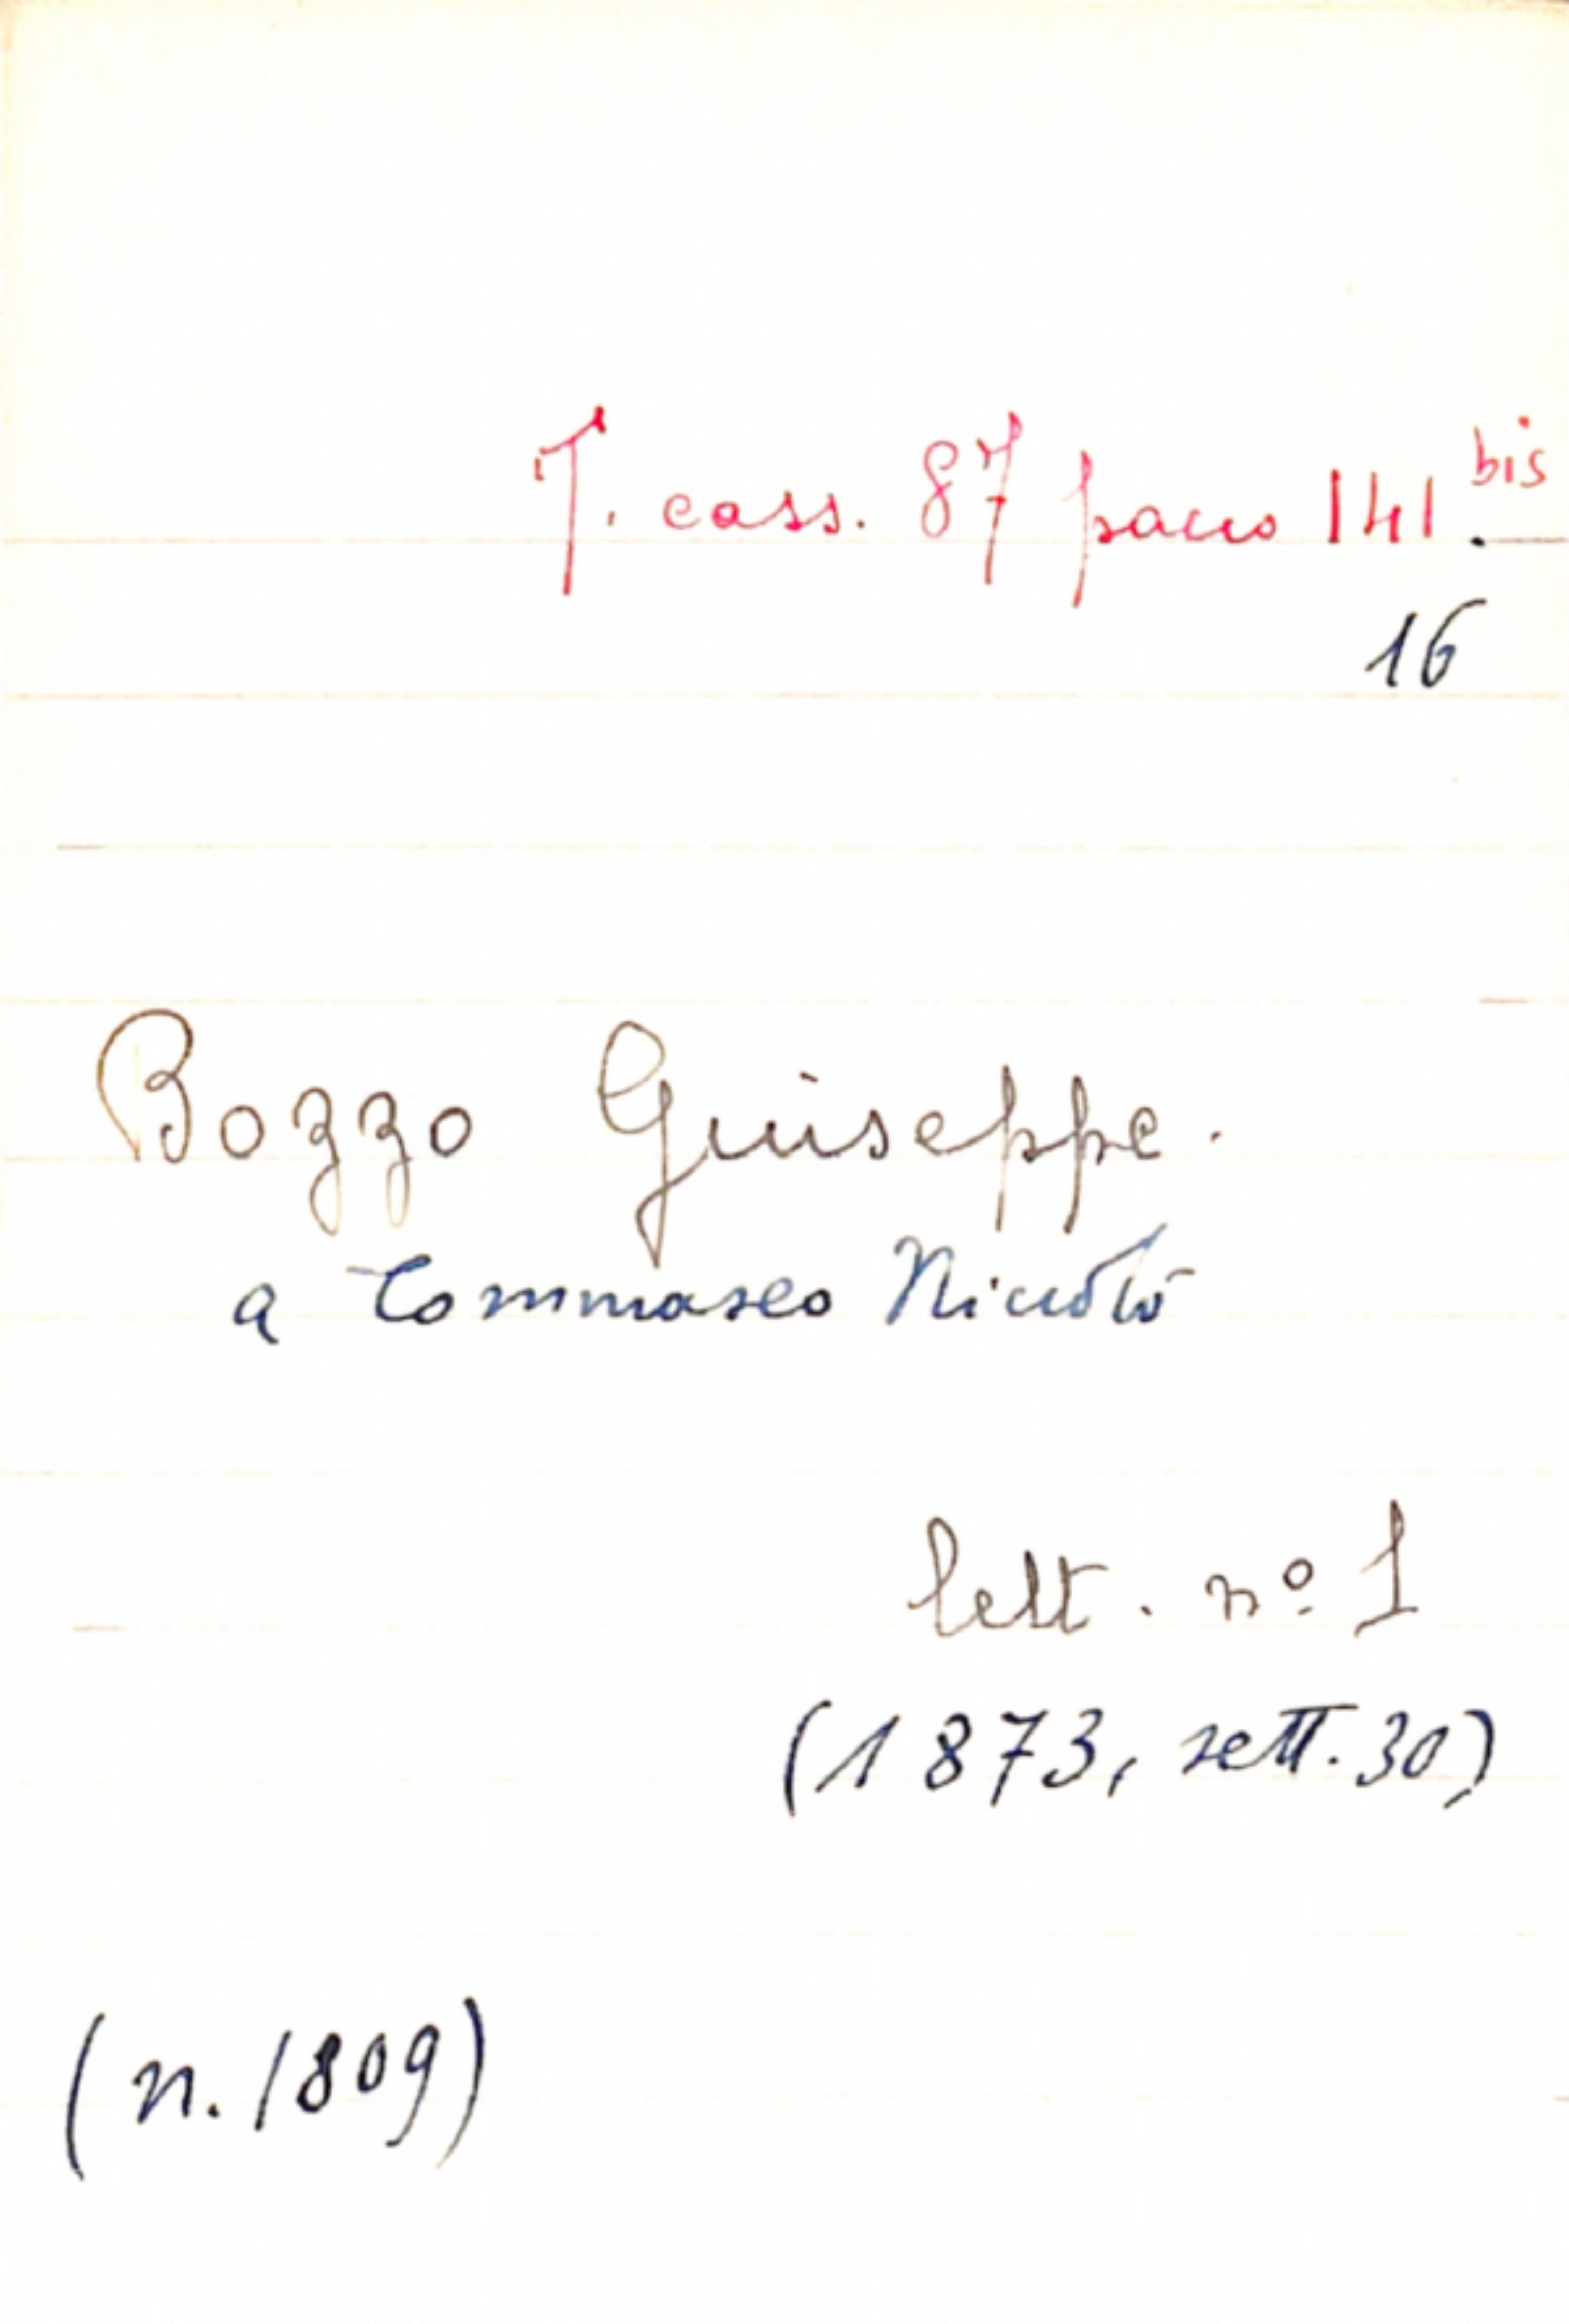 T. cass. 87 pacco 141. bis
16
Bozzo Giuseppe.
a Tommaseo Niccolò
lett. nº 1
(1873, sett. 30)
(n. 1809)